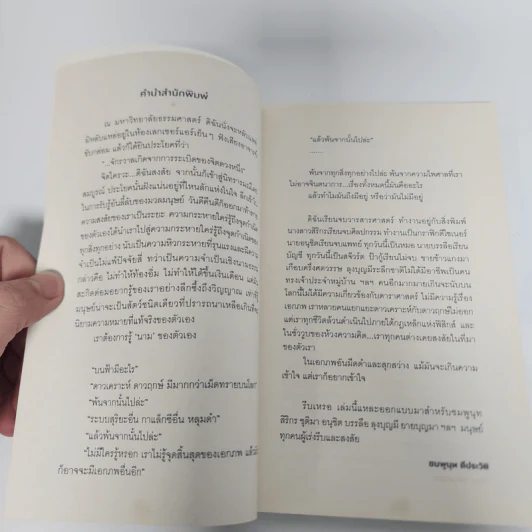 คำนำสำนักพิมพ์
ณ มหาวิทยาลัยธรรมศาสตร์ ดิฉันนั่ง
มีหลับแหล่อยู่ในห้องเลกเชอร์แอร์เย็นๆ ฟังเสียง
ขับกล่อม แล้วก็ได้ยินประโยคที่ว่า
"...จักรวาลเกิดจากการระเบิดของจิตดวงหนึ่ง"
จิตใครวะ...ดิฉันสงสัย จากนั้นก็เข้าสู่นิทรารมณ์
สมบูรณ์ ประโยคนั้นฝังแน่นอยู่ที่ไหนสักแห่งในใจ
ในการรับรู้อันลี้ลับของมวลมนุษย์ วันดีคืนดีก็ออกมา
ความสงสัยของเราเป็นระยะ ความกระหายใคร่รู้ถึงจุดกำเนิด
ของตัวเองได้นำเราไปสู่ความกระหายใคร่รู้ถึงจุดกำเนิดของ
ทุกสิ่งทุกอย่าง นับเป็นความหิวกระหายที่รุนแรงและมีความ
จำเป็นไม่แพ้ปัจจัยสี่ ทว่าเป็นความจำเป็นเชิงนามธรรม
กล่าวคือ ไม่ทำให้ท้องอิ่ม ไม่ทำให้ได้ขึ้นเงินเดือน แต่มัน
สะกิดต่อมอยากรู้ของเราอย่างลึกซึ้งถึงวิญญาณ
มนุษย์น่าจะเป็นสัตว์ชนิดเดียวที่ปรารถนาเหลือเกินที่จะ
นิยามความหมายที่แท้จริงของตัวเอง
เราต้องการรู้ 'นาม' ของตัวเอง
"บนฟ้ามีอะไร"
"ดาวเคราะห์ ดาวฤกษ์ มีมากกว่าเม็ดทรายบนโลก"
"พ้นจากนั้นไปล่ะ"
"ระบบสุริยะอื่น กาแล็กซีอื่น หลุมดำ"
"แล้วพ้นจากนั้นไปล่ะ"
"ไม่มีใครรู้หรอก เราไม่รู้จุดสิ้นสุดของเอกภพ แล้ว
ก็อาจจะมีเอกภพอื่นอีก"
"แล้วพ้นจากนั้นไปล่ะ"
พ้นจากทุกสิ่งทุกอย่างไปล่ะ พ้นจากความไพศาลที่เรา
ไม่อาจจินตนาการ...เรื่องทั้งหมดนี้มันคืออะไร
แล้วทำไมมันถึงมีอยู่ หรือว่ามันไม่มีอยู่
ดิฉันเรียนจบวารสารศาสตร์ ทำงานอยู่กับสิ่งพิมพ์
นางสาวสิริกรเรียนจบศิลปกรรม ทำงานเป็นกราฟิกดีไซเนอร์
นายอนุชิตเรียนจบแพทย์ ทุกวันนี้เป็นหมอ นายบรรลือเรียน
บัญชี ทุกวันนี้เป็นสจ๊วร์ด ป้าไพเรียนไม่จบ ขายข้าวแกงมา
เกือบครึ่งศตวรรษ ลุงบุญมีระลึกชาติไม่ได้มีอาชีพเป็นคน
ทรงเจ้าประจำหมู่บ้าน ฯลฯ คนอีกมากมายเกินจะนับบน
โลกนี้ไม่ได้มีความเกี่ยวข้องกับดาราศาสตร์ ไม่มีความรู้เรื่อง
เอกภพ เราหลายคนแยกแยะดาวเคราะห์กับดาวฤกษ์ไม่ออก
แต่เราทุกชีวิตล้วนดำเนินไปภายใต้กฎเหล็กแห่งฟิสิกส์ และ
ในชั่ววูบของห้วงความคิด...เราทุกคนต่างเคยสงสัยในที่มา
ของตัวเรา
ในเอกภพอันมืดดำและสุกสว่าง แม้มันจะเกินความ
เข้าใจ แต่เราก็อยากเข้าใจ
รีบเหรอ เล่มนี้แหละออกแบบมาสำหรับชมพูนุท
สิริกร ชุติมา อนุชิต บรรลือ ลุงบุญมี ยายบุญมา ฯลฯ มนุษย์
ทุกคนผู้เร่งรีบและสงสัย
ชมพูนุท ดีประวัติ